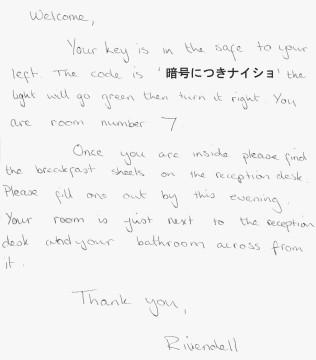 Welcome,
Your key is in the safe to your
left. The code is '暗号につきナイショ' the
light will go green then turn it right You
are room number 7
Once you are inside please find
the breakfast sheets on the reception desk.
Please fill one out by this evening.
Your room is just next to the reception
desk and your bathroom across from
it.
Thank you,
Rivendell